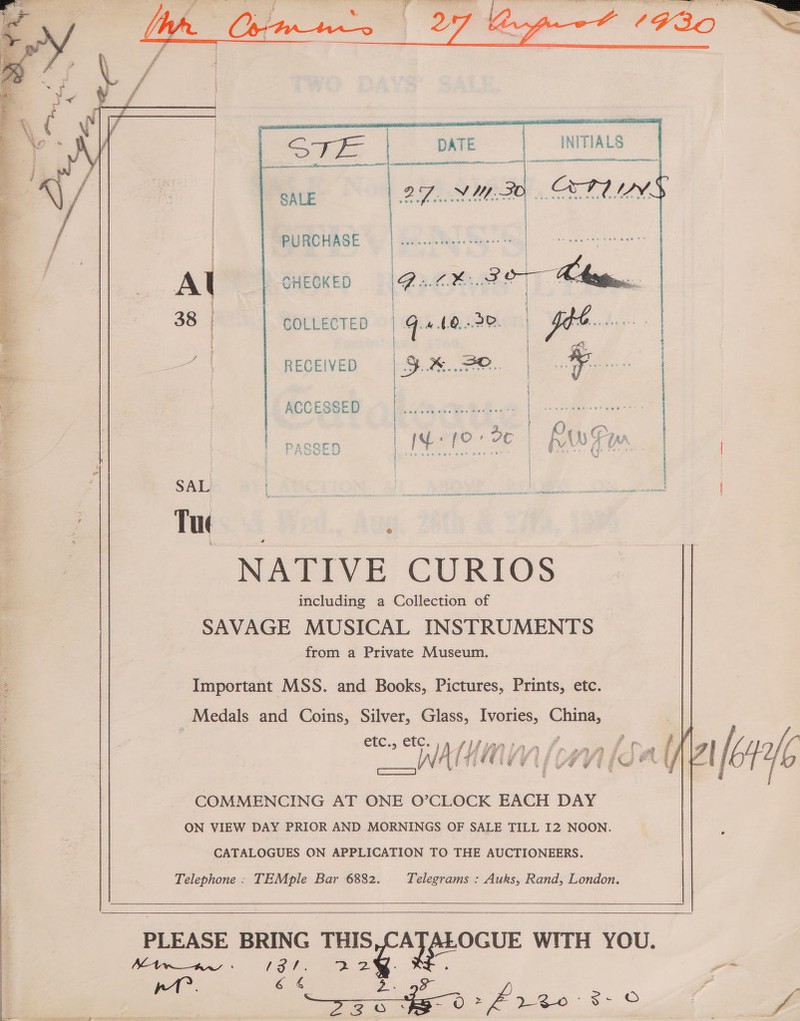 Mr Comins 27 August 1930
2nd Day
Comins
Original
TWO DAYS' SALE.
STE DATE INITIALS
SALE 27. VIII. 30 COMINS
PURCHASE
CHECKED 9. IX. 30
COLLECTED 9. 10. 30
RECEIVED 9. X. 30
ACCESSED
PASSED 14. 10. 30
38
SAL
Tue
NATIVE CURIOS
including a Collection of
SAVAGE MUSICAL INSTRUMENTS
from a Private Museum.
Important MSS. and Books, Pictures, Prints, etc.
Medals and Coins, Silver, Glass, Ivories, China,
etc., etc.
WA/HMM/CM/Sal/21/642/6
COMMENCING AT ONE O'CLOCK EACH DAY
ON VIEW DAY PRIOR AND MORNINGS OF SALE TILL 12 NOON.
CATALOGUES ON APPLICATION TO THE AUCTIONEERS.
Telephone : TEMple Bar 6882. Telegrams : Auks, Rand, London.
PLEASE BRING THIS CATALOGUE WITH YOU.
131.
66
= £230-3-0